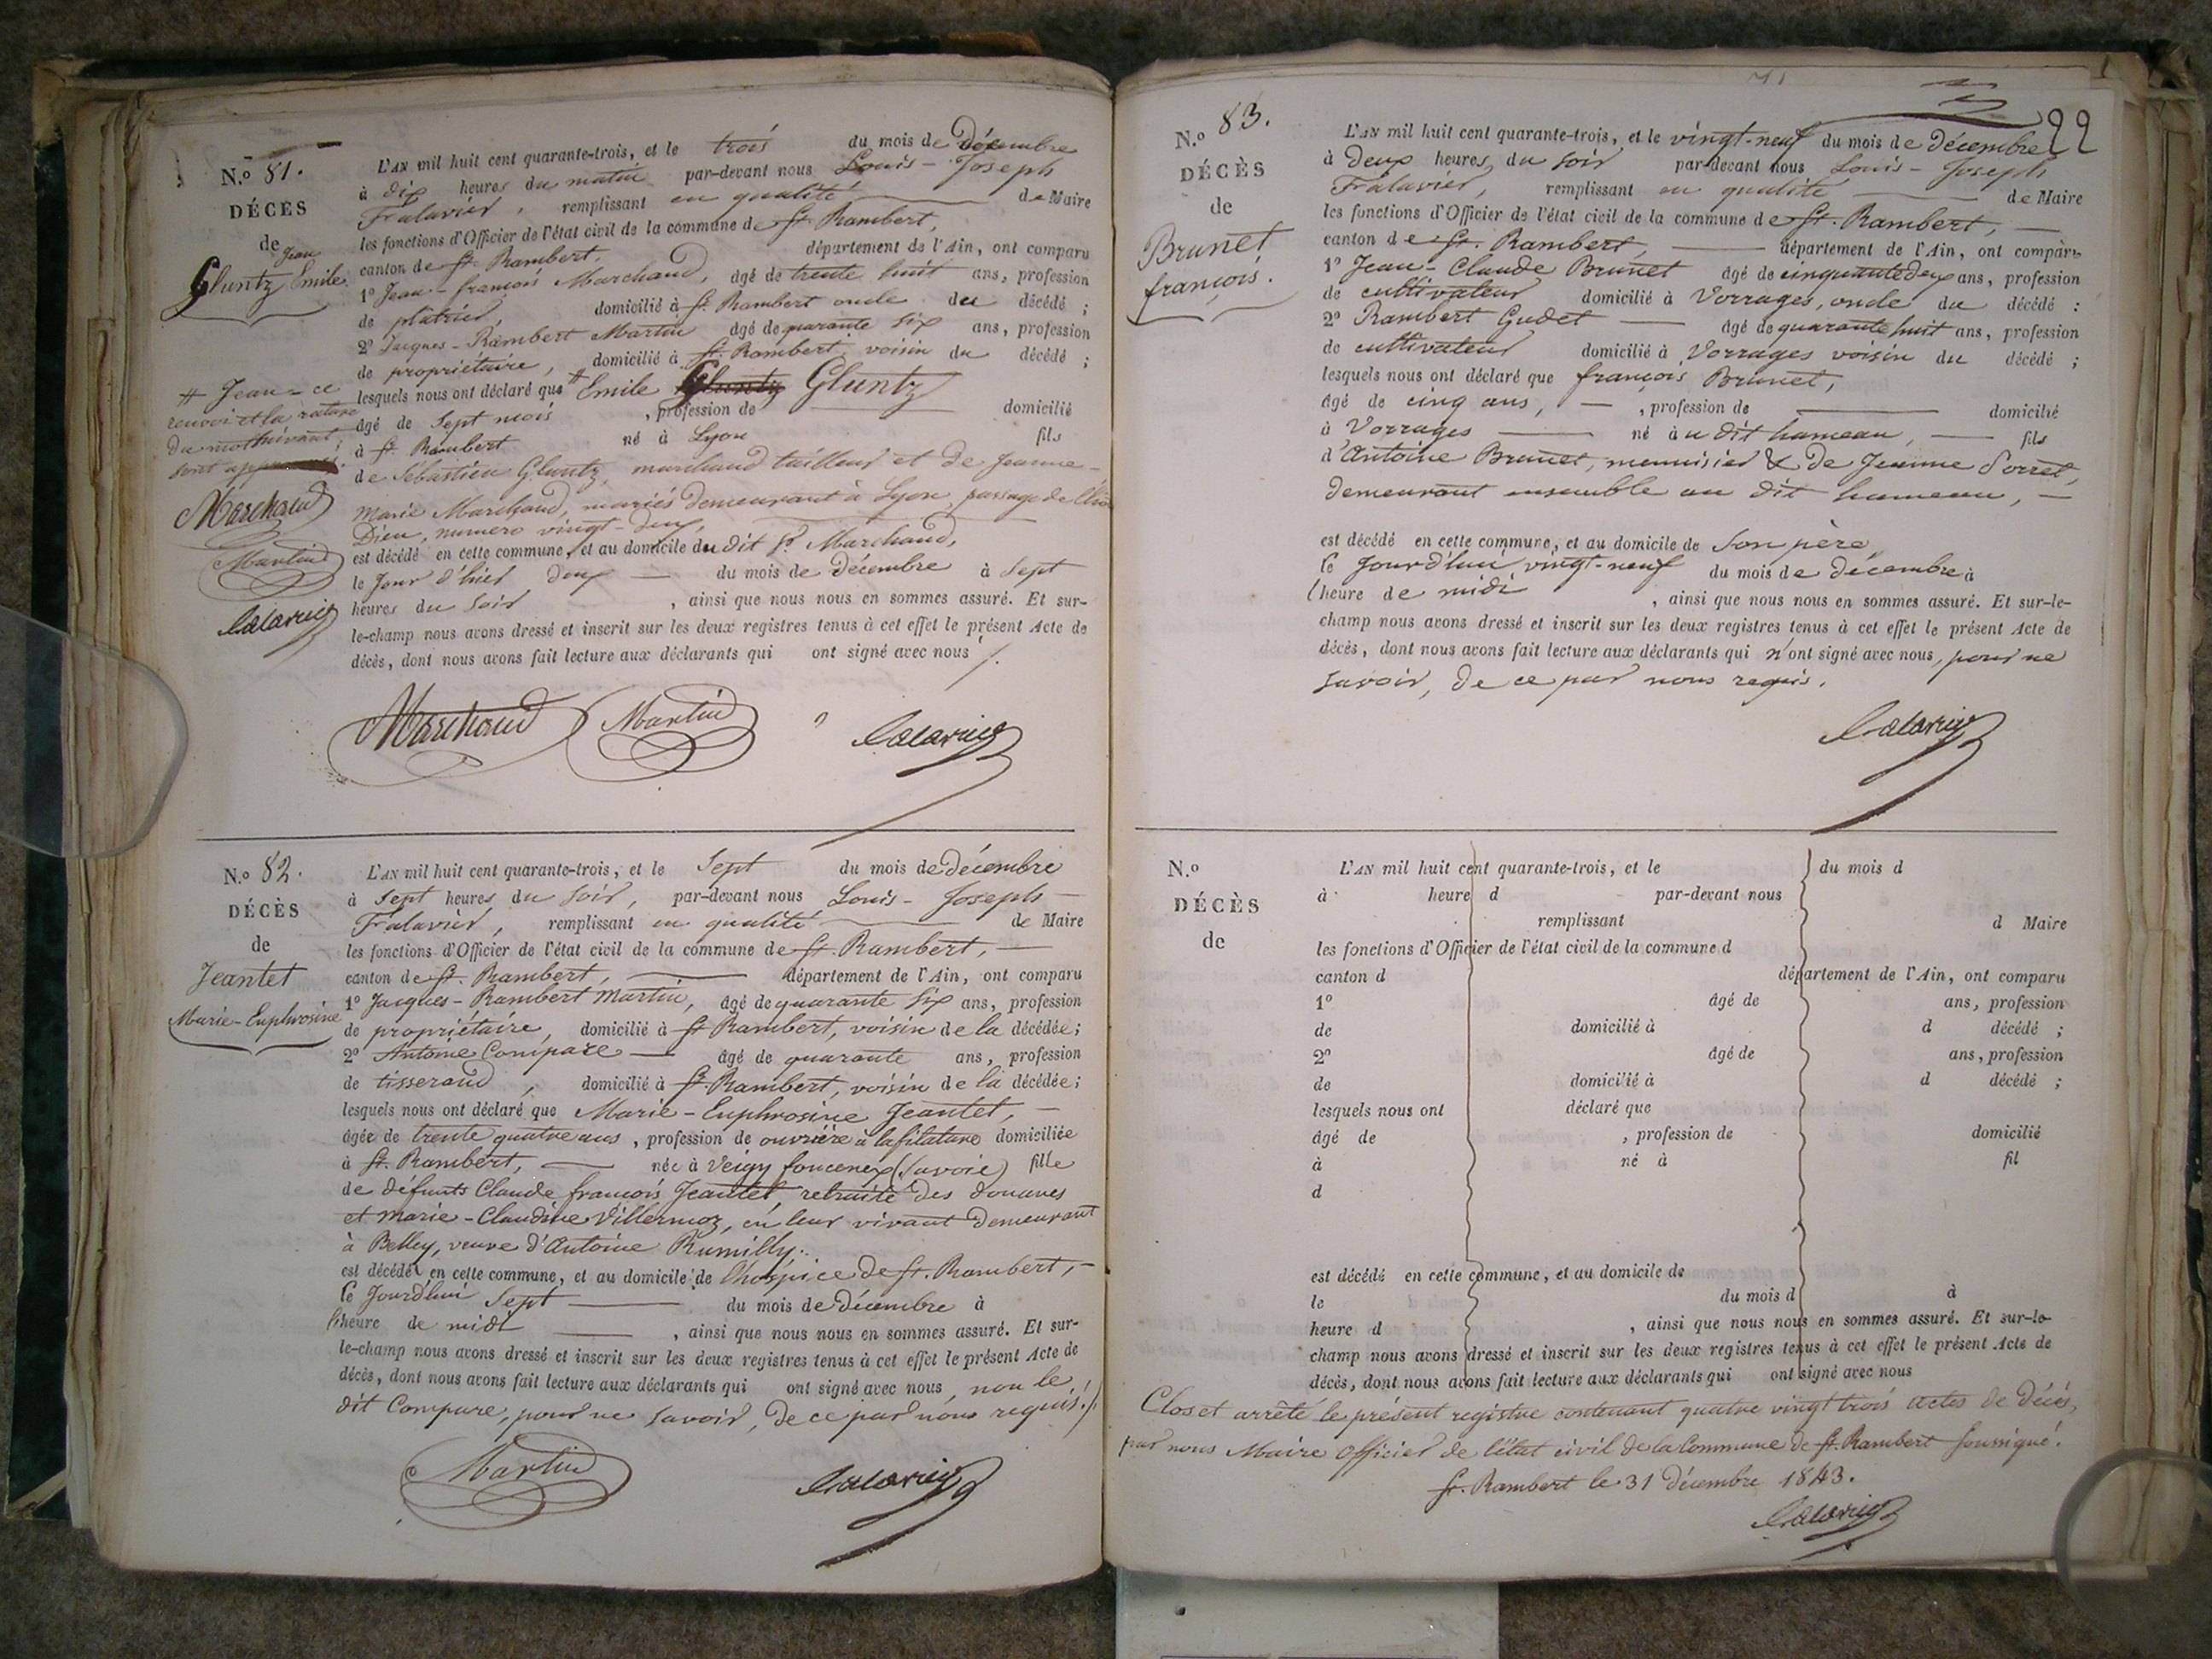 N.º 81.
DÉCÈS
de
Jean
Gluntz Emile
L'AN mil huit cent quarante-trois, et le trois du mois de Décembre
à dix heures du matin par-devant nous Louis-Joseph
Falavier, remplissant en qualité de Maire
les fonctions d'Officier de l'état civil de la commune de St. Rambert,
canton de St. Rambert, département de l'Ain, ont comparu
1º Jean-françois Marchand, âgé de trente huit ans, profession
de plâtrier, domicilié à St. Rambert oncle du décédé ;
2º Jacques-Rambert Martin âgé de quarante six ans, profession
de propriétaire, domicilié à St. Rambert, voisin du décédé ;
lesquels nous ont déclaré que # Emile Gluntz Gluntz
âgé de Sept mois , profession de domicilié
à St. Rambert né à Lyon fils
de Sébastien Gluntz, marchand tailleur et de Jeanne-
Marie Marchand, mariés demeurant à Lyon, passage de l'hôtel
Dieu, numero vingt-deux,
est décédé en cette commune, et au domicile du dit Sr. Marchand,
le Jour d'hier deux du mois de Décembre à Sept
heures du Soir , ainsi que nous nous en sommes assuré. Et sur-
le-champ nous avons dressé et inscrit sur les deux registres tenus à cet effet le présent Acte de
décès, dont nous avons fait lecture aux déclarants qui ont signé avec nous /.
# Jean = ce
renvoi et la rature
du mot suivant
sont approuvés.
Marchand
Martin
Falavier
Marchand Martin Falavier
N.º 82.
DÉCÈS
de
Jeantet
Marie-Euphrosine
L'AN mil huit cent quarante-trois, et le Sept du mois de Décembre
à Sept heures du Soir, par-devant nous Louis-Joseph
Falavier, remplissant en qualité de Maire
les fonctions d'Officier de l'état civil de la commune de St. Rambert,
canton de St. Rambert, département de l'Ain, ont comparu
1º Jacques-Rambert Martin, âgé de quarante Six ans, profession
de propriétaire, domicilié à St. Rambert, voisin de la décédée ;
2º Antoine Compare âgé de quarante ans, profession
de tisserand, domicilié à St. Rambert, voisin de la décédée ;
lesquels nous ont déclaré que Marie-Euphrosine Jeantet,
âgée de trente quatre ans, profession de ouvrière à la filature domiciliée
à St. Rambert, née à Veigy foncenex (Savoie) fille
de défunts Claude françois Jeantet retraité des douanes
et Marie-Claudine Villermoz, en leur vivant demeurant
à Belley, veuve d'Antoine Rumilly.
est décédé en cette commune, et au domicile de l'hospice de St. Rambert,
le Jourd'hui Sept du mois de Décembre à
l'heure de midi , ainsi que nous nous en sommes assuré. Et sur-
le-champ nous avons dressé et inscrit sur les deux registres tenus à cet effet le présent Acte de
décès, dont nous avons fait lecture aux déclarants qui ont signé avec nous, non le
dit Compare, pour ne Savoir, de ce par nous requis ./.
Martin Falavier
22
N.º 83.
DÉCÈS
de
Brunet
françois.
L'AN mil huit cent quarante-trois, et le vingt-neuf du mois de Décembre
à deux heures du soir par-devant nous Louis-Joseph
Falavier, remplissant en qualité de Maire
les fonctions d'Officier de l'état civil de la commune de St. Rambert,
canton de St. Rambert, département de l'Ain, ont comparu
1º Jean-Claude Brunet âgé de cinquante deux ans, profession
de cultivateur domicilié à Vorrages, oncle du décédé :
2º Rambert Gudet âgé de quarante huit ans, profession
de cultivateur domicilié à Vorrages voisin du décédé ;
lesquels nous ont déclaré que françois Brunet,
âgé de cinq ans, , profession de domicilié
à Vorrages né au dit hameau, fils
d'Antoine Brunet, menuisier & de Jeanne Sorret,
demeurant ensemble au dit hameau,
est décédé en cette commune, et au domicile de Son père
le Jourd'hui vingt-neuf du mois de décembre à
l'heure de midi , ainsi que nous nous en sommes assuré. Et sur-le-
champ nous avons dressé et inscrit sur les deux registres tenus à cet effet le présent Acte de
décès, dont nous avons fait lecture aux déclarants qui n'ont signé avec nous, pour ne
savoir, de ce par nous requis.
Falavier
N.º
DÉCÈS
de
L'AN mil huit cent quarante-trois, et le du mois d
à heure d par-devant nous
remplissant d Maire
les fonctions d'Officier de l'état civil de la commune d
canton d département de l'Ain, ont comparu
1º âgé de ans, profession
de domicilié à d décédé ;
2º âgé de ans, profession
de domicilié à d décédé ;
lesquels nous ont déclaré que
âgé de , profession de domicilié
à né à fil
d
est décédé en cette commune, et au domicile de
le du mois d à
heure d , ainsi que nous nous en sommes assuré. Et sur-le-
champ nous avons dressé et inscrit sur les deux registres tenus à cet effet le présent Acte de
décès, dont nous avons fait lecture aux déclarants qui ont signé avec nous
Clos et arrêté le présent registre contenant quatre vingt trois actes de Décès,
par nous Maire Officier de l'état civil de la Commune de St. Rambert Soussigné.
St. Rambert le 31 Décembre 1843.
Falavier